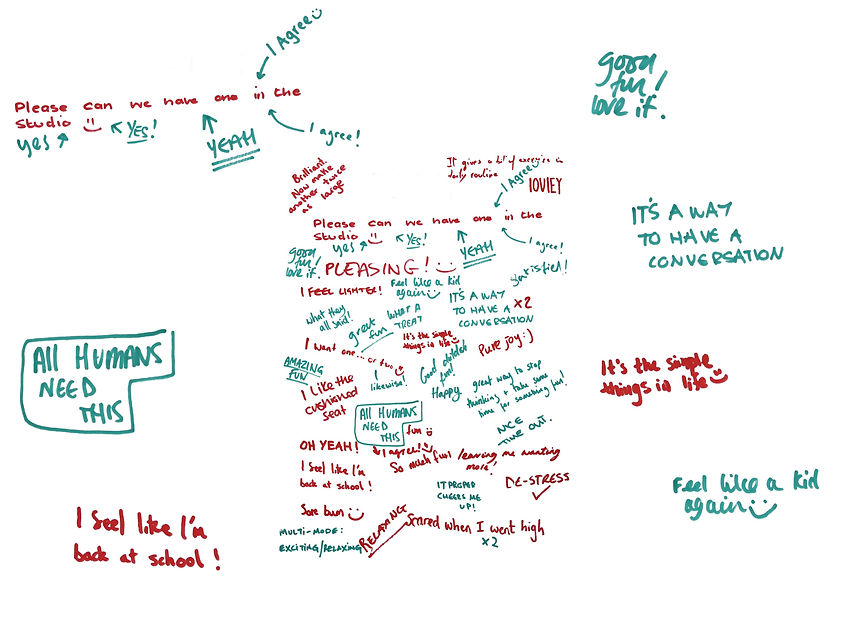 I Agree
Please can we have one in the
Studio
yes
YES!
YEAH
I agree!
good
fun!
love it.
Brilliant.
Now make
another twice
as large
It gives a bit of exercise in
daily routine
I Agree
Please can we have one in the
Studio
yes
YES!
YEAH
I agree!
IT'S A WAY
TO HAVE A
CONVERSATION
good
fun!
love it.
PLEASING!
I FEEL LIGHTER!
Feel like a kid
again
IT'S A WAY
TO HAVE A
CONVERSATION
x2
what they
all said!
great
fun
WHAT A
TREAT
It's the simple
things in life
Pure joy :)
All HUMANS
NEED
THIS
I want one... or two
AMAZING
FUN
I
likewise!
Good
fun!
Happy
great way to stop
thinking + take some
time for something fun!
It's the simple
things in life
I Like the
cushioned
seat
All HUMANS
NEED
THIS
fun
NICE
TIME OUT.
OH YEAH!
I agree!
So much fun! leaving me wanting
more!
I feel like I'm
back at school!
IT PROPER
CHEERS ME
UP!
DE-STRESS
Feel like a kid
again
Sore bum
MULTI-MODE:
EXCITING/RELAXING
RELAXING
Scared when I went high
x2
I feel like I'm
back at school!